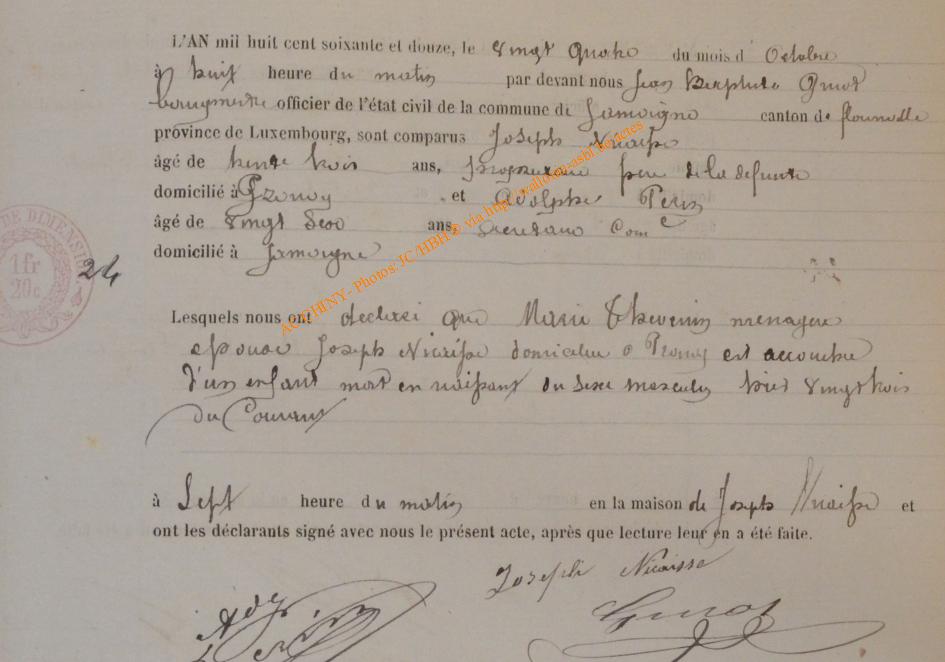 L'AN mil huit cent soixante et douze, le vingt quatre du mois d' Octobre
à huit heure du matin par devant nous Jean Guiot
bourgmestre officier de l'état civil de la commune de Jamoigne canton de florenville
province de Luxembourg, sont comparus Joseph Nicaisse
âgé de trente trois ans, père de la defunte
domicilié à Prouvy et Adolphe Perin
âgé de vingt deux ans, Secretaire Com e
domicilié à Jamoigne
DE DIMENSION
1 fr
20 c.
24
Lesquels nous ont declaré que Marie Thevenin menagere
epouse Joseph Nicaisse domiciliée a Prouvy est accouchee
d'un enfant mort en naissant du sexe masculin hier vingt trois
du Courant
à Sept heure du matin en la maison de Joseph Nicaisse et
ont les déclarants signé avec nous le présent acte, après que lecture leur en a été faite.
Joseph Nicaisse
Adp
Perin
Guiot
AC CHINY - Photos: JC/HBH © via http://walloux-asbl.be/actes